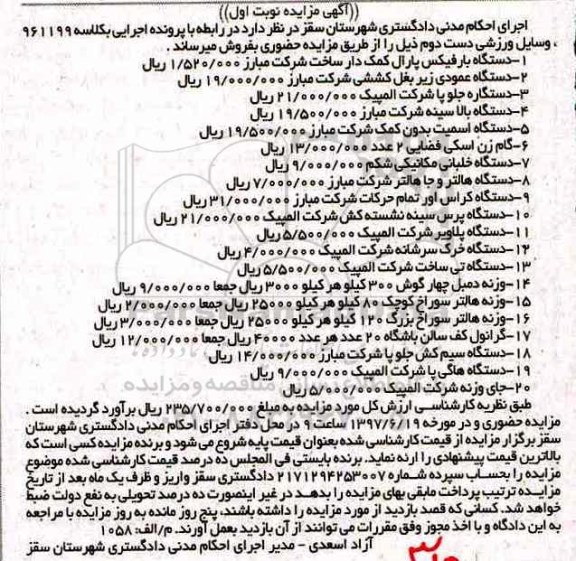 ((آگهی مزایده نوبت اول))
اجرای احکام مدنی دادگستری شهرستان سقز در نظر دارد در رابطه با پرونده اجرایی بکلاسه ۹۶۱۱۹۹
، وسایل ورزشی دست دوم ذیل را از طریق مزایده حضوری بفروش میرساند .
۱-دستگاه بارفیکس پارال کمک دار ساخت شرکت مبارز ۱/۵۲۰/۰۰۰ ریال
۲-دستگاه عمودی زیر بغل کششی شرکت مبارز ۱۹/۰۰۰/۰۰۰ ریال
۳-دستگاره جلو پا شرکت المپیک ۲۱/۰۰۰/۰۰۰ ریال
۴-دستگاه بالا سینه شرکت مبارز ۱۹/۵۰۰/۰۰۰ ریال
۵-دستگاه اسمیت بدون کمک شرکت مبارز ۱۹/۵۰۰/۰۰۰ ریال
۶-گام زن اسکی فضایی ۲ عدد ۱۳/۰۰۰/۰۰۰ ریال
۷-دستگاه خلبانی مکانیکی شکم ۹/۰۰۰/۰۰۰ ریال
۸-دستگاه هالتر و جا هالتر شرکت مبارز ۷/۰۰۰/۰۰۰ ریال
۹-دستگاه کراس اور تمام حرکات شرکت مبارز ۳۱/۰۰۰/۰۰۰ ریال
۱۰-دستگاه پرس سینه نشسته کش شرکت المپیک ۲۱/۰۰۰/۰۰۰ ریال
۱۱-دستگاه پلاویر شرکت المپیک ۵/۵۰۰/۰۰۰ ریال
۱۲-دستگاه خرک سرشانه شرکت المپیک ۴/۰۰۰/۰۰۰ ریال
۱۳-دستگاه تی ساخت شرکت المپیک ۵/۵۰۰/۰۰۰ ریال
۱۴-وزنه دمبل چهار گوش ۳۰۰ کیلو هر کیلو ۳۰۰۰ ریال جمعا ۹/۰۰۰/۰۰۰ ریال
۱۵-وزنه هالتر سوراخ کوچک ۸۰ کیلو هر کیلو ۲۵۰۰۰ ریال جمعا ۲/۰۰۰/۰۰۰ ریال
۱۶-وزنه هالتر سوراخ بزرگ ۱۲۰ کیلو هر کیلو ۲۵۰۰۰ ریال جمعا ۳/۰۰۰/۰۰۰ ریال
۱۷-گرانول کف سالن باشگاه ۲۰ عدد هر عدد ۴۰۰۰۰ ریال جمعا ۱۲/۰۰۰/۰۰۰ ریال
۱۸-دستگاه سیم کش جلو پا شرکت مبارز ۱۴/۰۰۰/۰۰۰ ریال
۱۹-دستگاه هاگی پا شرکت المپیک ۹/۰۰۰/۰۰۰ ریال
۲۰-جای وزنه شرکت المپیک ۵/۰۰۰/۰۰۰ ریال
طبق نظریه کارشناسی ارزش کل مورد مزایده به مبلغ ۲۳۵/۷۰۰/۰۰۰ ریال برآورد گردیده است .
مزایده حضوری و در مورخه ۱۳۹۷/۶/۱۹ ساعت ۹ در محل دفتر اجرای احکام مدنی دادگستری شهرستان
سقز برگزار مزایده از قیمت کارشناسی شده بعنوان قیمت پایه شروع می شود و برنده مزایده کسی است که
بالاترین قیمت پیشنهادی را ارئه نماید. برنده بایستی فی المجلس ده درصد قیمت کارشناسی شده موضوع
مزایده را بحساب سپرده شماره ۲۱۷۱۲۹۴۲۵۳۰۰۷ دادگستری سقز واریز و ظرف یک ماه بعد از تاریخ
مزایده ترتیب پرداخت مابقی بهای مزایده را بدهد در غیر اینصورت ده درصد تحویلی به نفع دولت ضبط
خواهد شد. کسانی که قصد بازدید از مورد مزایده را داشته باشند، پنج روز مانده به روز مزایده با مراجعه
به این دادگاه و با اخذ مجوز وفق مقررات می توانند از آن بازدید بعمل آورند. م/الف: ۱۰۵۸
آزاد اسعدی - مدیر اجرای احکام مدنی دادگستری شهرستان سقز